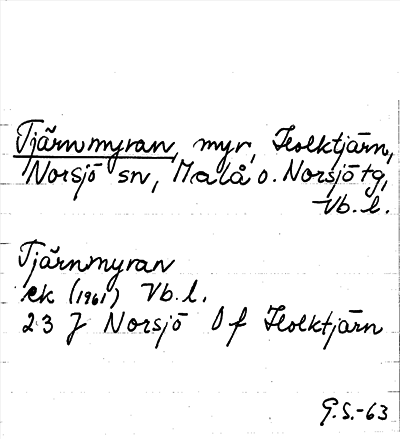 Tjärnmyran, myr, Holktjärn,
Norsjö sn, Malå o. Norsjö tg,
Vb. l.
Tjärnmyran
ek (1961) Vb. l.
23 J Norsjö 0 f Holktjärn
G.S.-63